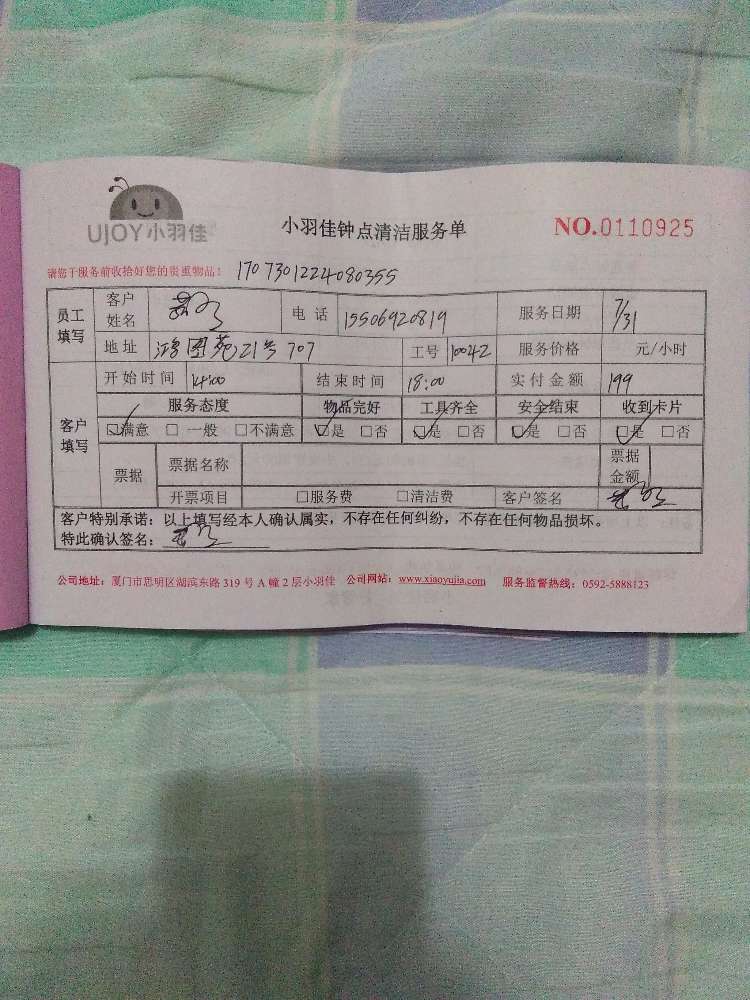 UJOY小羽佳
小羽佳钟点清洁服务单
NO.0110925
请您于服务前收拾好您的贵重物品! 1707301224080355
员工填写 客户姓名 电话 15506920819 服务日期 7/31
地址 鸿图苑21号707 工号 10042 服务价格 元/小时
客户填写 开始时间 14:00 结束时间 18:00 实付金额 199
服务态度 物品完好 工具齐全 安全结束 收到卡片
☑满意 □一般 □不满意 ☑是 □否 ☑是 □否 ☑是 □否 ☑是 □否
票据 票据名称 票据金额
开票项目 □服务费 □清洁费 客户签名
客户特别承诺：以上填写经本人确认属实，不存在任何纠纷，不存在任何物品损坏。
特此确认签名：
公司地址：厦门市思明区湖滨东路 319 号 A 幢 2 层小羽佳 公司网站：www.xiaoyujia.com 服务监督热线：0592-5888123